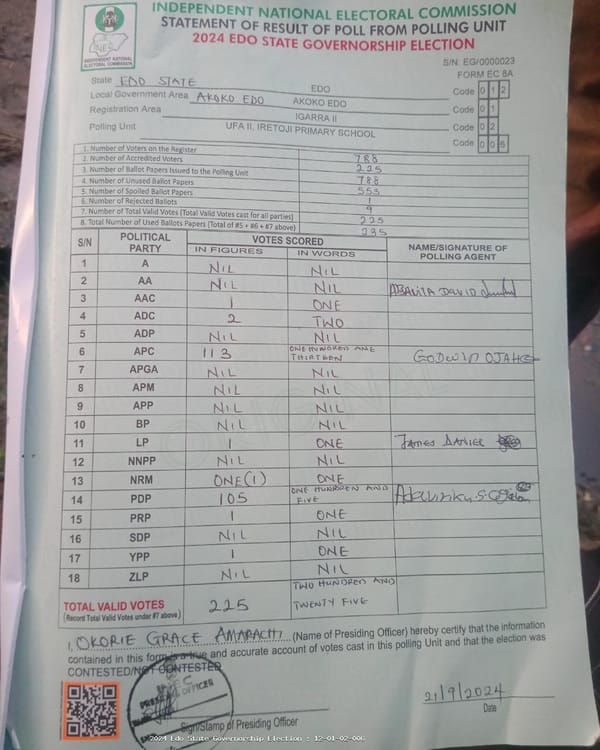 INDEPENDENT NATIONAL ELECTORAL COMMISSION
STATEMENT OF RESULT OF POLL FROM POLLING UNIT
2024 EDO STATE GOVERNORSHIP ELECTION
INEC
INDEPENDENT NATIONAL
ELECTORAL COMMISSION
S/N: EG/0000023
FORM EC 8A
State EDO STATE EDO Code 0 1 2
Local Government Area AKOKO EDO AKOKO EDO Code 0 1
Registration Area IGARRA II Code 0 2
Polling Unit UFA II, IRETOJI PRIMARY SCHOOL Code 0 0 6
1. Number of Voters on the Register 788
2. Number of Accredited Voters 225
3. Number of Ballot Papers Issued to the Polling Unit 788
4. Number of Unused Ballot Papers 553
5. Number of Spoiled Ballot Papers 1
6. Number of Rejected Ballots 9
7. Number of Total Valid Votes (Total Valid Votes cast for all parties) 225
8. Total Number of Used Ballots Papers (Total of #5 + #6 + #7 above) 235
S/N POLITICAL PARTY VOTES SCORED NAME/SIGNATURE OF POLLING AGENT
IN FIGURES IN WORDS
1 A NIL NIL
2 AA NIL NIL DAVID
3 AAC 1 ONE
4 ADC 2 TWO
5 ADP NIL NIL
6 APC 113 ONE HUNDRED AND THIRTEEN GODWIN
7 APGA NIL NIL
8 APM NIL NIL
9 APP NIL NIL
10 BP NIL NIL
11 LP 1 ONE JAMES DANIEL
12 NNPP NIL NIL
13 NRM ONE(1) ONE
14 PDP 105 ONE HUNDRED AND FIVE
15 PRP 1 ONE
16 SDP NIL NIL
17 YPP 1 ONE
18 ZLP NIL NIL
TOTAL VALID VOTES 225 TWO HUNDRED AND TWENTY FIVE
(Record Total Valid Votes under #7 above)
ORIGINAL
I, OKORIE GRACE AMARACHI (Name of Presiding Officer) hereby certify that the information
contained in this form is a true and accurate account of votes cast in this polling Unit and that the election was
CONTESTED/NOT CONTESTED
OFFICER
21/9/2024
Sign/Stamp of Presiding Officer Date
2024 Edo State Governorship Election : 12-01-02-006